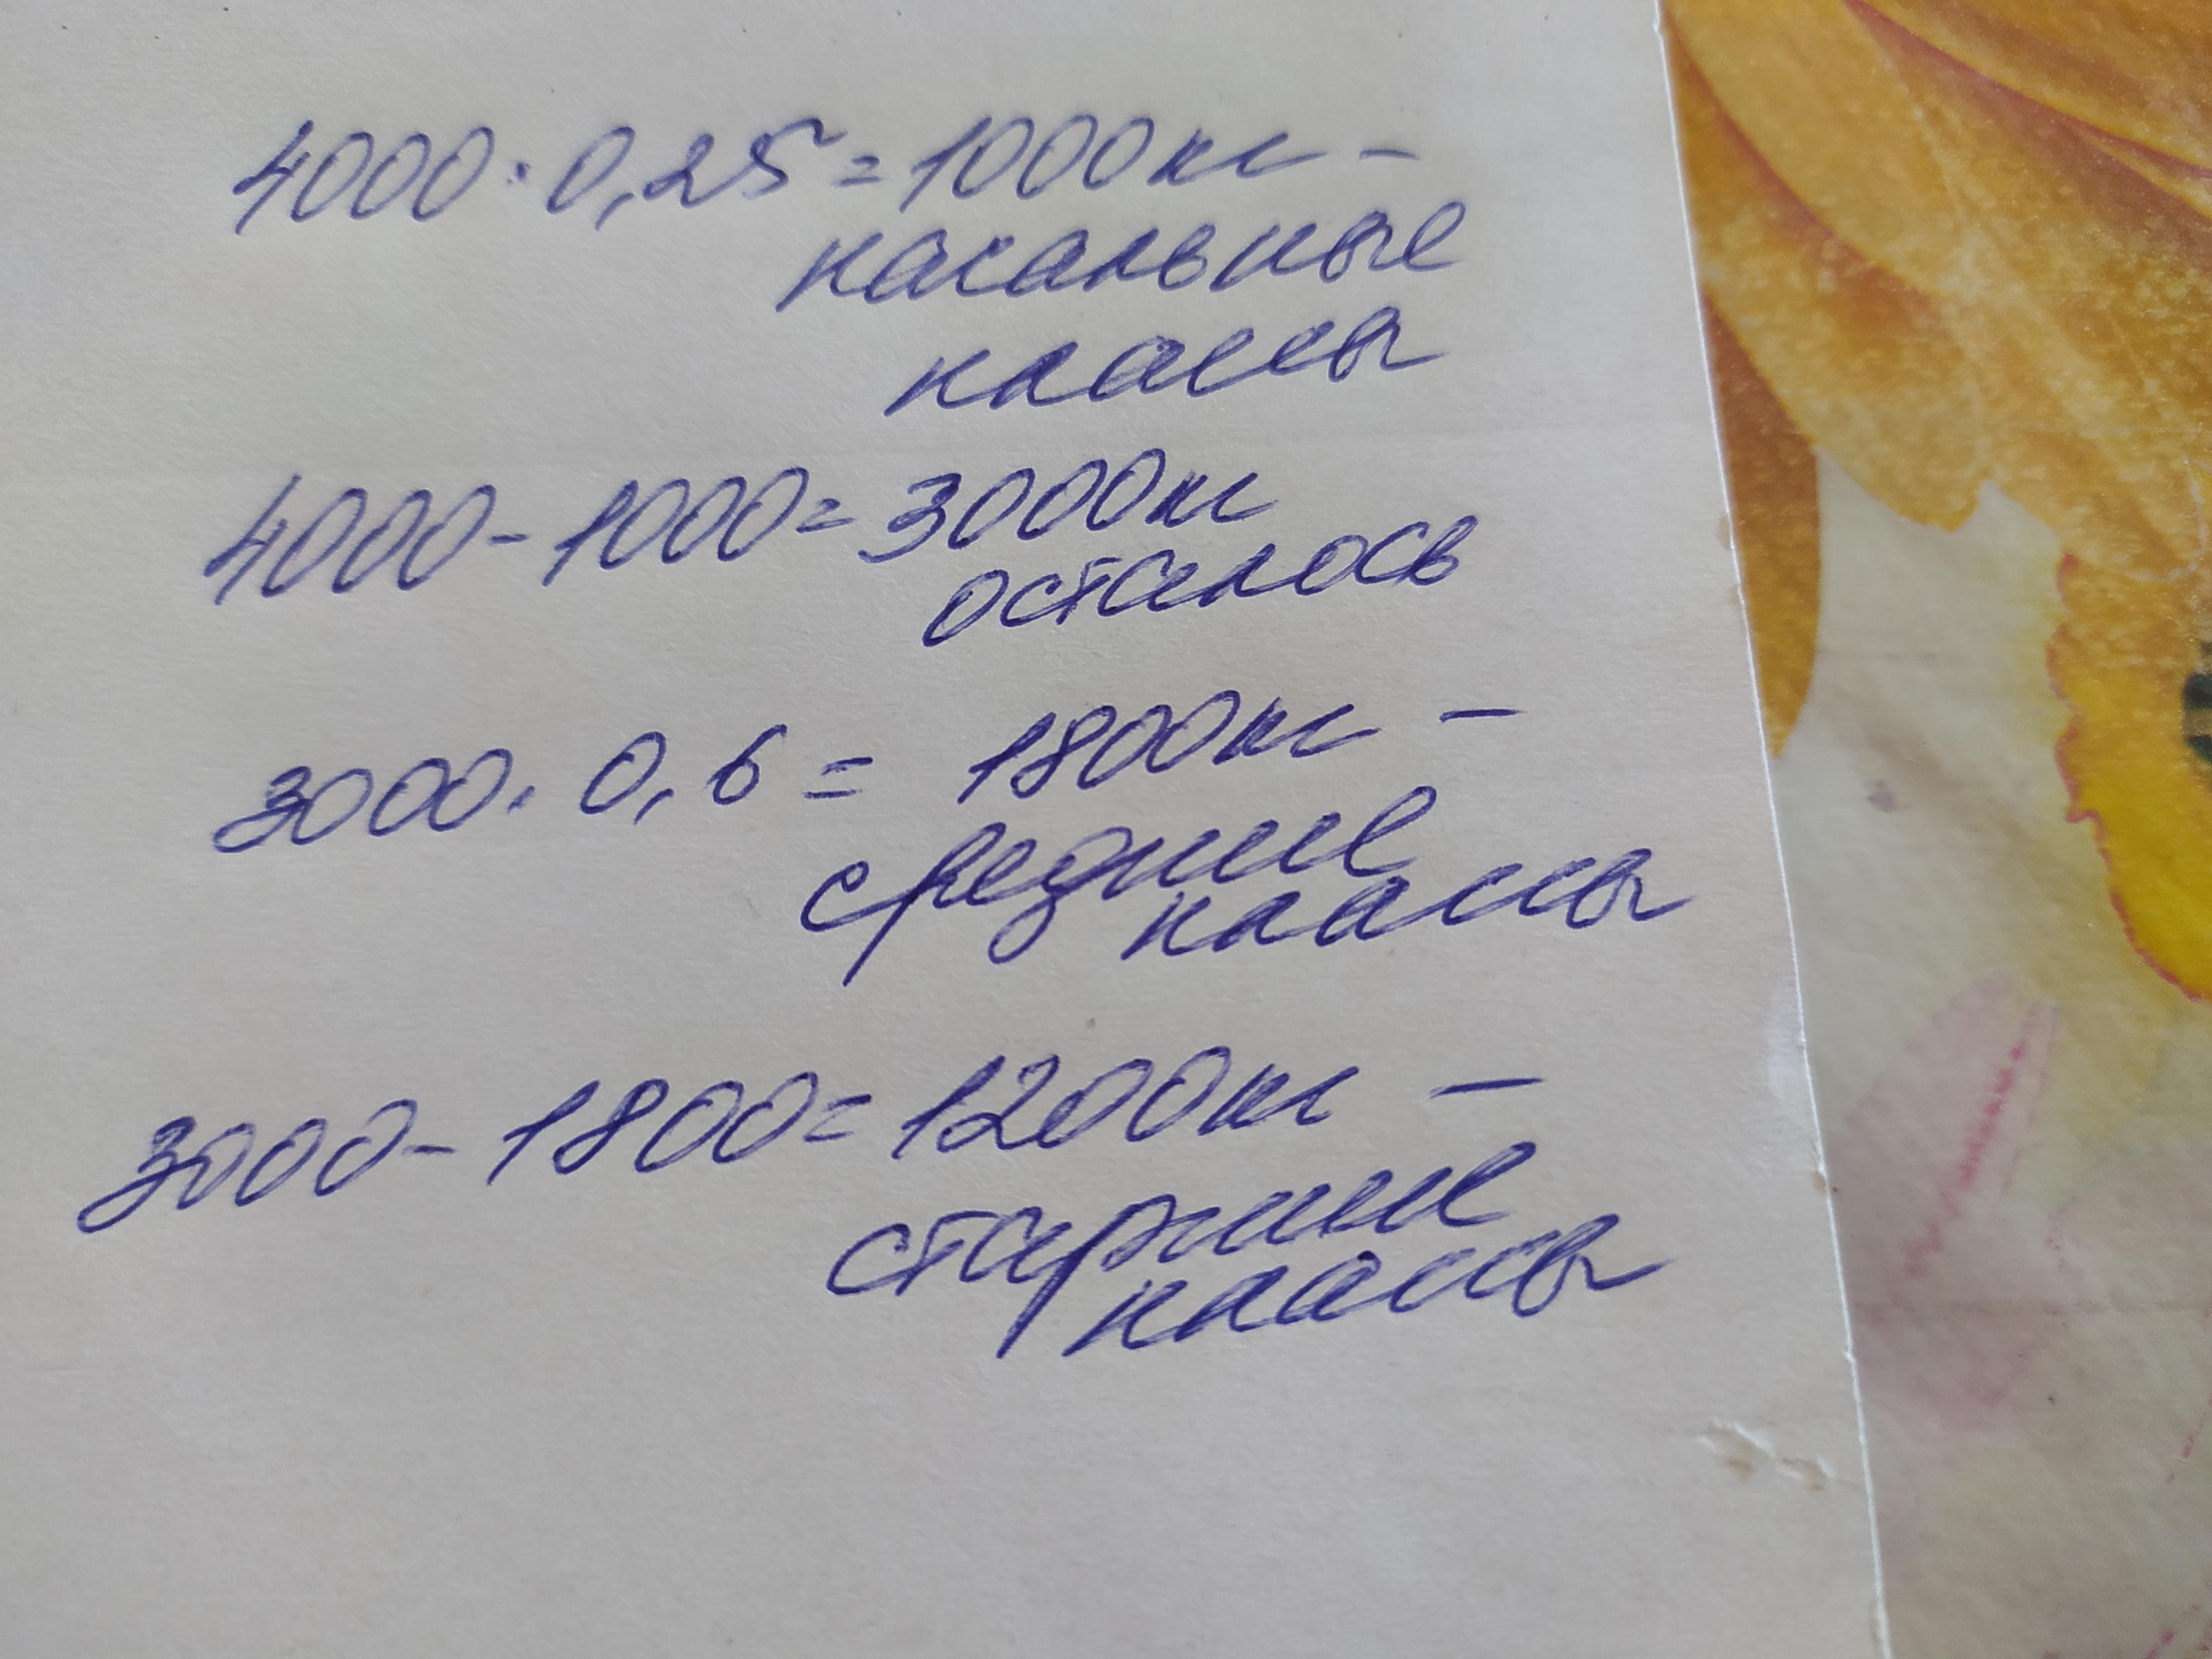 4000·0,25=1000кг –
начальные
классы
4000-1000=3000кг
осталось
3000·0,6= 1800кг –
средние
классы
3000-1800=1200кг –
старшие
классы